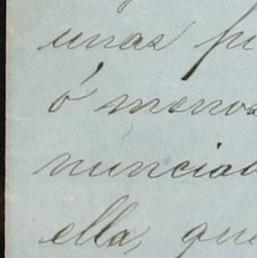 unas
ó menos
nuncia
ella, que